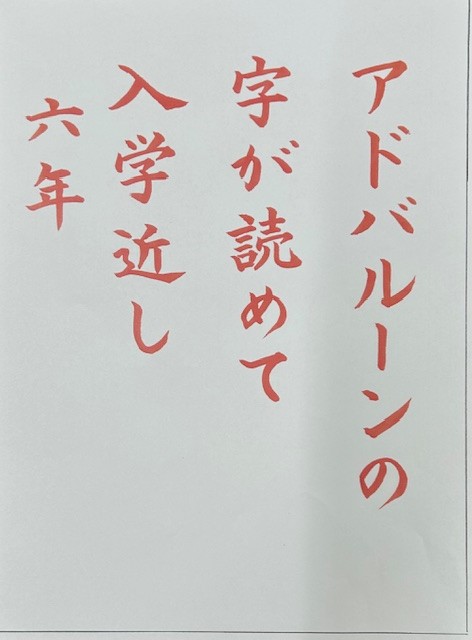 アドバルーンの
字が読めて
入学近し
六年